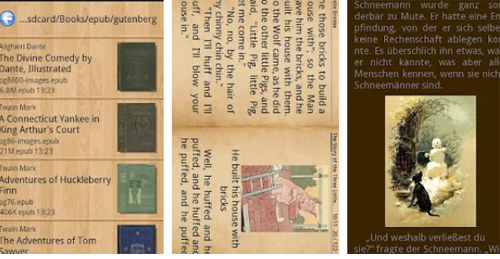 ...sdcard/Books/epub/gutenberg
Alighieri Dante
The Divine Comedy by
Dante, Illustrated
pg8800-images.epub
6.8M epub 13:23
Twain Mark
A Connecticut Yankee in
King Arthur's Court
pg86-images.epub
21M epub 13:23
Twain Mark
Adventures of Huckleberry
Finn
pg76.epub
406K epub 13:23
Twain Mark
The Adventures of Tom
Sawyer
me those bricks to build a
house with"; so the Man
gave him the bricks, and he
built his house with them.
So the Wolf came, as he did
to the other little pigs, and
said, "Little Pig, little Pig,
let me come in."
"No, no, by the hair of
my chinny chin chin."
"Then I'll huff and I'll
puff, and I'll blow your
house in."
The Story of the Three Little
He built his house with
bricks
Well, he huffed and he
puffed, and he huffed and
he puffed, and he puffed
Schneemann wurde ganz son
derbar zu Mute. Er hatte eine Em
pfindung, von der er sich selbe
keine Rechenschaft ablegen kon
nte. Es überschlich ihn etwas, wa
er nicht kannte, was aber alle
Menschen kennen, wenn sie nich
Schneemänner sind.
„Und weshalb verließest du
sie?" fragte der Schneemann. „Wi